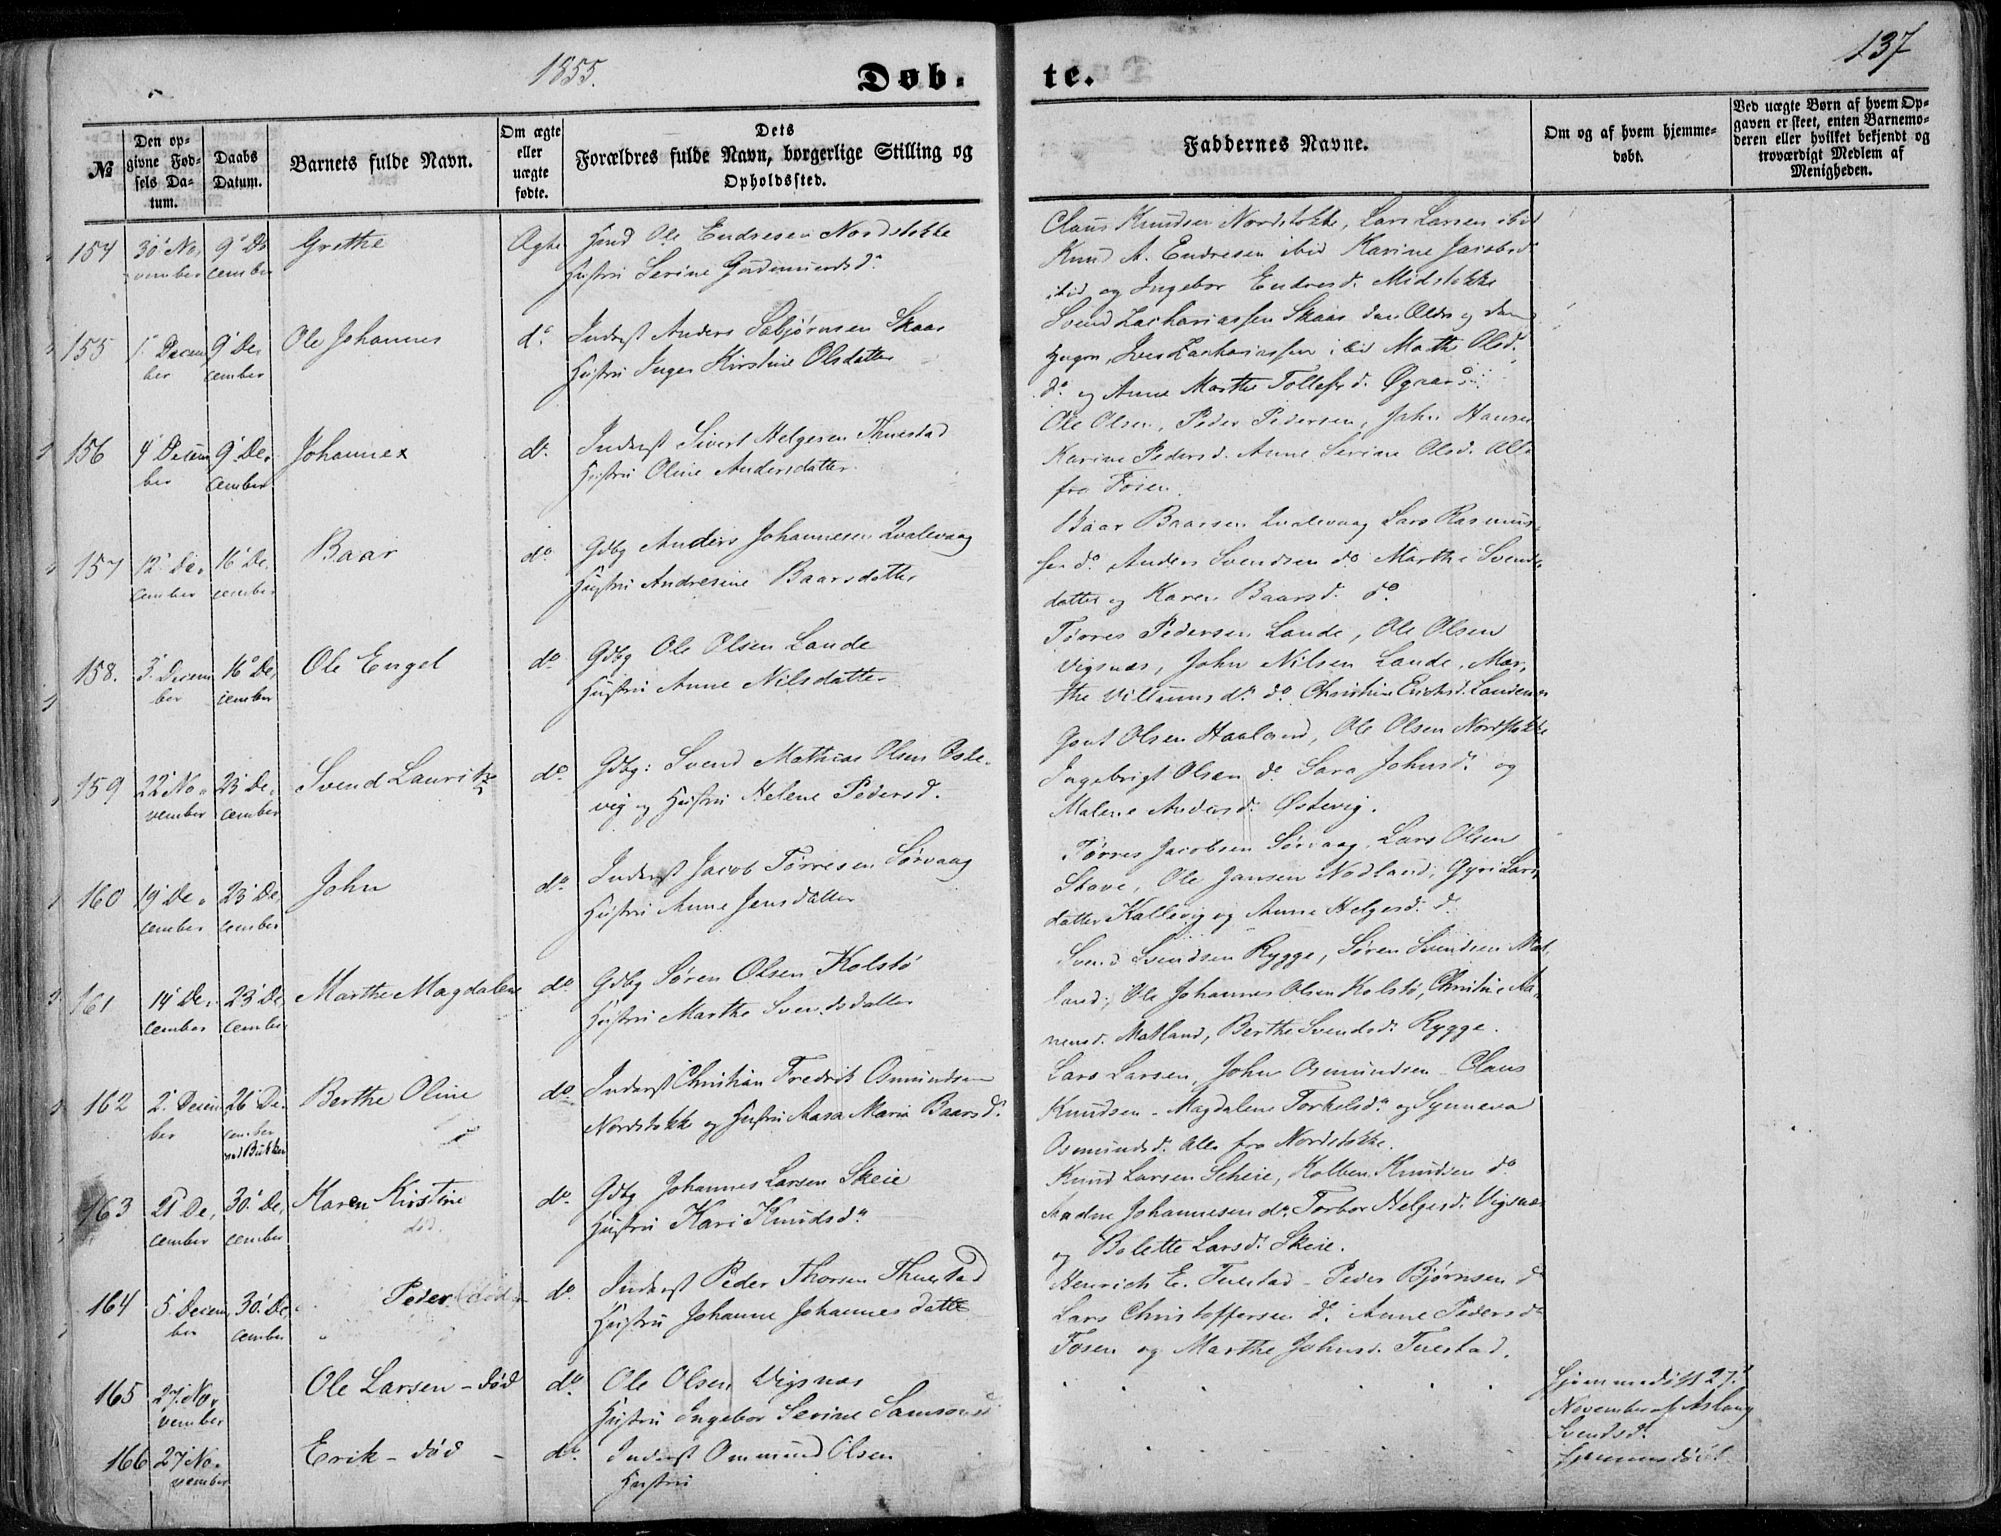 1855.
Døb-
te.
137
№
Den opgivne Fødsels Datum.
Daabs Datum.
Barnets fulde Navn.
Om ægte eller uægte fødte.
Dets Forældres fulde Navn, borgerlige Stilling og Opholdssted.
Faddernes Navne.
Om og af hvem hjemmedøbt.
Ved uægte Børn af hvem Opgaven er skeet, enten Barnemoderen eller hvilket bekjendt og troværdigt Medlem af Menigheden.
154 30' No, 9' De Grethe Ægte Ole Endresen Nordstokke
vember cember Hustru Serine Gudmundsd.
Claus Knudsen Nordstokke, Lars Larsen ibid
Knud A. Endresen ibid Karine Jacobsd
ibid og Ingebor Endresd. Midstokke
155 1' Decem 9' De, Ole Johannes d.' Inderst Anders Sæbjørnsen Skaar
ber cember Hustru Inger Kirstine Olsdatter
Svend Zachariassen Skaar
Zachariassen ibid Marthe Olsd.
d.' og Anne Marthe Tollefsd. Øgaard
156 4' Decem 9' De, Johannes d.' Inderst Sivert Helgesen Thuestad
ber cember Hustru Oline Andersdatter
Ole Olsen, Peder Pedersen, John Hansen
Karine Pedersd. Anne Serine Olsd. Alle
fra Fosen.
157 12' De, 16' De, Baar do. Gdbg Anders Johannesen Qvalevaag
cember cember Hustru Andresine Baarsdatter
Baar Baarsen Qvalevaag Lars Rasmus-
sen do Anders Svendsen do Marthe Svends-
datter og Karen Baarsd. do.
158. 3' Decem 16' De, Ole Engel do. Gdbg Ole Olsen Lande
ber cember Hustru Anne Nilsdatter
Tørres Pedersen Lande, Ole Olsen
Vigsnæs, John Nilsen Lande, Mar-
the Villumsd. do Christine Eriksd. Landenes
159 22' No, 23' De, Svend Lauritz do. Gdbg: Svend Mathias Olsen Oste-
vember cember vig og Hustru Helene Pedersd.
Gout Olsen Haaland, Ole Olsen Nordstokke
Ingebrigt Olsen d. Sara Johnsd. og
Malene Andersd. Østevig.
160 19' De, 23' De, John do. Inderst Jacob Tørresen Sørvaag
cember cember Hustru Anne Jensdatter
Tørres Jacobsen Sørvaag, Lars Olsen
Stave, Ole Jansen Nodland, Gyri Lars-
datter Kallevig og Anne Helgesd. d.
161 14' De, 23' De, Marthe Magdalene do. Gdbg Søren Olsen Kolstø
cember cember Hustru Marthe Svendsdatter
Svend Svendsen Rygge, Søren Svendsen Mat-
land, Ole Johannes Olsen Kolstø, Christine
Matland, Berthe Svendsd. Rygge.
162 2' Decem 26' De, Berthe Oline do. Inderst Christian Fredrik Osmundsen
ber cember Nordstokke og Hustru Aasa Maria Baarsd.
Lars Larsen, John Osmundsen - Claus
Knudsen - Magdalene Torkelsd. og Synneva
Osmundsd. Alle fra Nordstokke.
163 21' De, 30' De, Karen Kirstine do. Gdbg Johannes Larsen Skeie
cember cember død. Hustru Kari Knudsd.
Knud Larsen Scheie, Kolben Knudsen do
Johannesen do. Torbor Helgesd. Vigsnæs
og Bolette Larsd. Skeie.
164 5' Decem 30' De, Peder (død) do. Inderst Peder Thorsen Thuestad
ber cember Hustru Johanne Johannesdatter
Henrich E. Tuestad - Peder Bjørnsen d
Lars Christoffersen d. Anne Pedersd.
Fosen og Marthe Johnsd. Tuestad.
165 27' No, Ole Larsen - død do. Ole Olsen Vigsnæs
vember Hustru Ingebor Serine Samsonsd
Hjemmedøbt 27'
November af Aslaug
Svendsd.
166 27' No, Erik - død - do. Inderst Ommund Olsen
vember Hustru
Hjemmedøbt